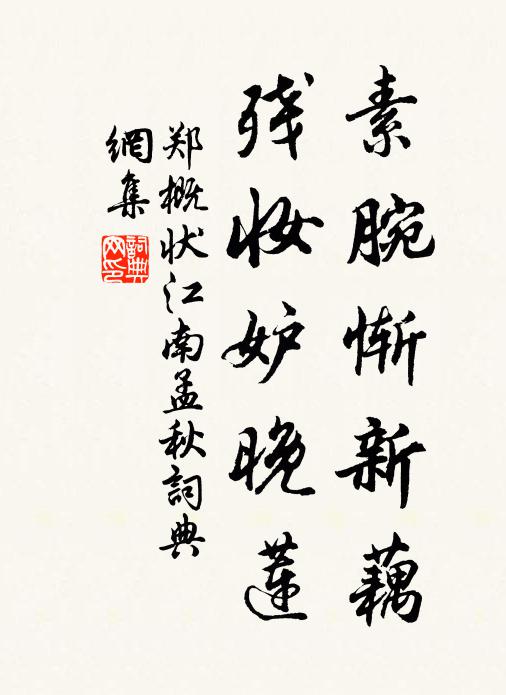 素腕惭新藕
残妆妒晚莲
郑概状江南孟秋詞典
網集
詞典网印